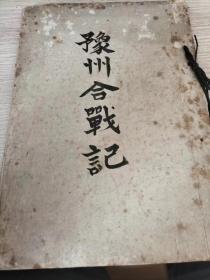 豫州合戰記